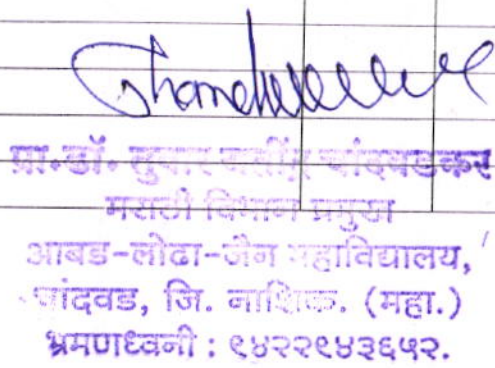 प्रा.डॉ. तुषार चांदवडकर
मराठी विभाग प्रमुख
आबड-लोढा-जैन महाविद्यालय,
चांदवड, जि. नाशिक. (महा.)
भ्रमणध्वनी : ९४२२९४३६५२.